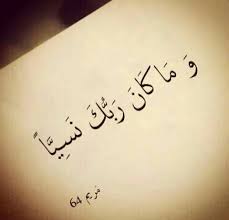 وَ مَا كَانَ رَبُّكَ نَسِيًّا
مريم 64